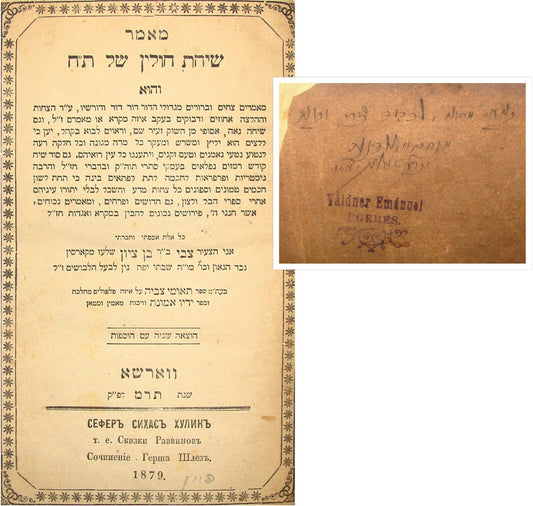 מאמר
שיחת חולין של ת״ח
והוא
מאמרים צחים וברורים מגדולי הדור דור דור ודורשיו, ע״ד הצחות
וההלצה אחוזים ודבוקים בעקב איזה מקרא או מאמרים ז״ל, וגם
שיחה נאה, אסופי מן השוק זעיר שם, וראוים לבוא בקהל, יען כי
לקלצים הוא יליץ ומשרש ומעקר כל מדה מגונה וכל חלקה רעה
לנטוע נטעי נאמנים וטעם זקנים, ויתענגו כל עין רואיהם. גם סוד שיח
קודש רמזים נפלאים בעמקי סתרי תוה״ק ובדברי חז״ל והרבה
גימטריות ופרפראות לחכמה לתת לפתאים בינה כי תחת לשון
חכמים ממונים וספונים כל צחות מדע והשכל לבלי יתורו עיניהם
אחרי ספרי הבל ולצון, גם חדושים ופרחים, ומאמרים נכוחים,
אשר חנני ה׳, פירושים נכונים להבין במקרא ואגדות חז״ל
כל אלה אספתי וחברתי
אני הצעיר צבי ב״ר בן ציון שלעז מקארסין
נכד הגאון וכו׳ מו״ה שבתי יפה נין לבעל הלבושים ז״ל
בעהמ״ח ספר תאומי צביה על איזה פלפולים מהלכה
וספר ידיו אמונת וויכוח מאמין ומטאן
הוצאה שניה עם הוספות
ווארשא
שנת תרמ לפ״ק
СЕФЕРЪ СИХАСЪ ХУЛИНЪ
т. е. Сказки Раввиновъ
Сочиненіе Герша Шлезъ.
1879.
Váldner Emánuel
EGERES.